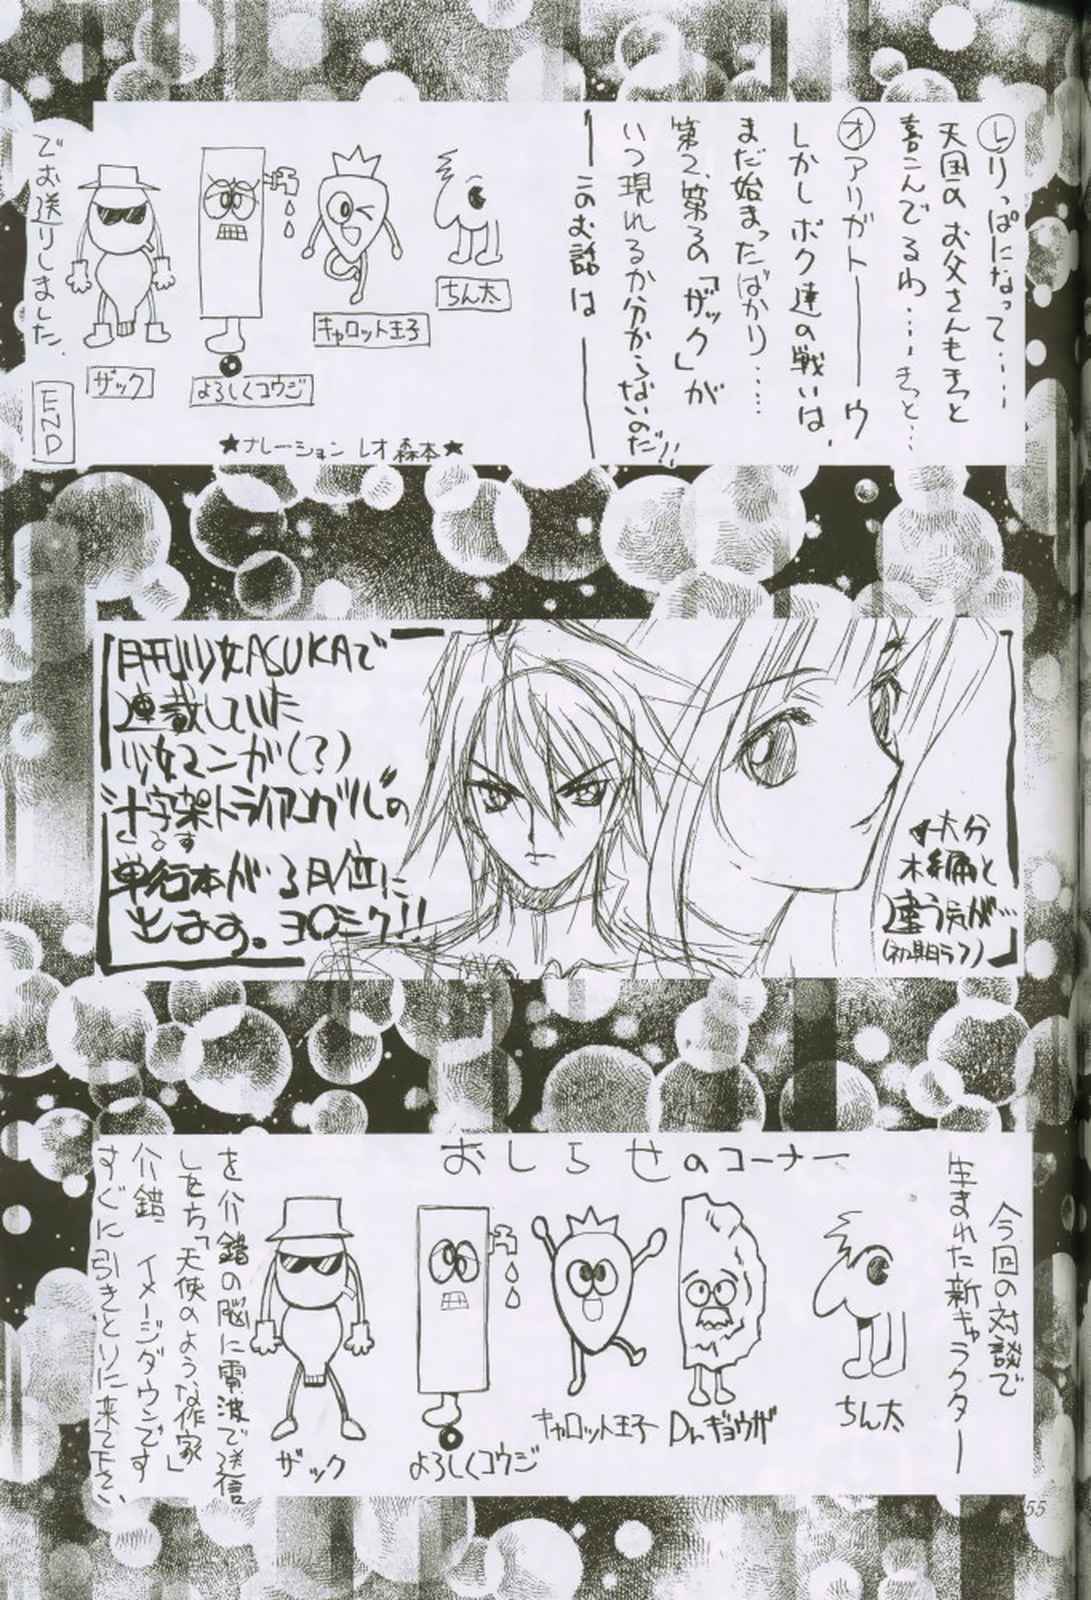 ㋹りっぱになって・・・・
天国のお父さんもきっと
喜こんでるわ・・・・きっと・・・
㋔アリガトーーウ
しかしボク達の戦いは、
まだ始まったばかり・・・・・
第2、第3の「ザック」が
いつ現れるか分からないのだ!!
―このお話は―
ちん太
キャロット王子
よろしくコウジ
ザック
★ナレーション レオ森本★
でお送りしました。
END
月刊少女ASUKAで
連載していた
少女マンガ(?)
"十字架トライアングル"の
くるす
単行本が3月位に
出ます。ヨロシク!!
大分
本編と
違う気が…
(初期ラフ)
おしらせのコーナー
今回の対談で
生まれた新キャラクター
ちん太
Dr.ギョウザ
キャロット王子
よろしくコウジ
ザック
を介錯の脳に電波で送信
しをち「天使のような作家」
介錯 イメージダウンです
すぐに引きとりに来て下さい、
55